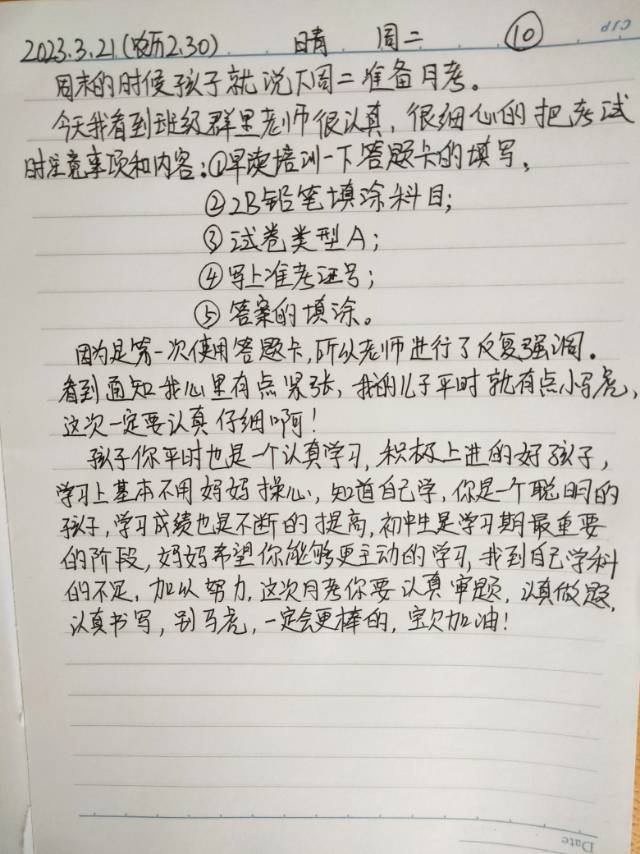 2023.3.21(农历2.30) 晴 周二 ⑩
周末的时候孩子就说下周二准备月考。
今天我看到班级群里老师很认真,很细心的把考试
时注意事项和内容:①早读培训一下答题卡的填写。
②2B铅笔填涂科目;
③试卷类型A;
④写上准考证号;
⑤答案的填涂。
因为是第一次使用答题卡,所以老师进行了反复强调。
看到通知我心里有点紧张,我的儿子平时就有点小马虎,
这次一定要认真仔细啊!
孩子你平时也是一个认真学习,积极上进的好孩子,
学习上基本不用妈妈操心,知道自己学,你是一个聪明的
孩子,学习成绩也是不断的提高,初中生是学习期最重要
的阶段,妈妈希望你能够更主动的学习,找到自己学科
的不足,加以努力,这次月考你要认真审题,认真做题,
认真书写,别马虎,一定会更棒的,宝贝加油!
Date